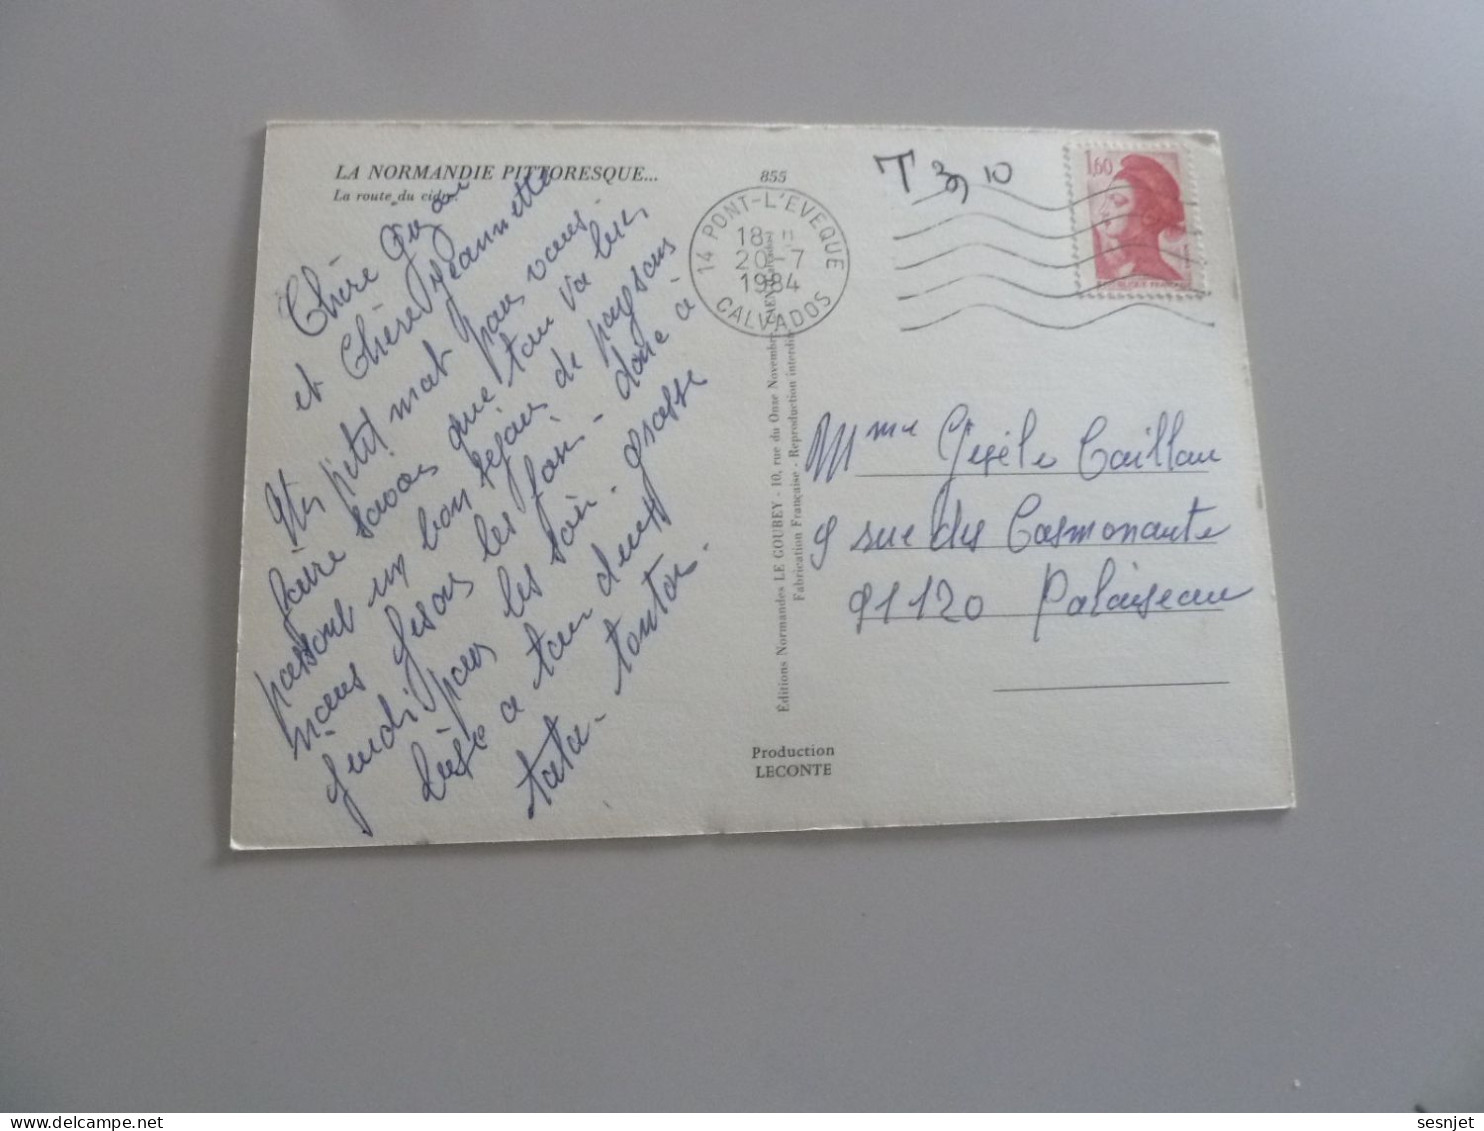 LA NORMANDIE PITTORESQUE...
La route du cidre.
855
Chère
et Chère Jeannette
petit mot pour vous
faire savoir que tou va bien
passons un bon séjour de paysans
nous fesons les foin - donc à
jeudi pour les soir. grosse
bise a tou deux
tata - tonton.
14 PONT-L'EVEQUE
18 H
20 - 7
1984
CALVADOS
T 3,10
1,60
Éditions Normandes LE GOUBEY - 10, rue du Onze Novembre - CAEN
Fabrication Française - Reproduction interdite
Production
LECONTE
Mme Gisèle Caillau
9 rue des Cosmonaute
91120 Palaiseau
sesnjet